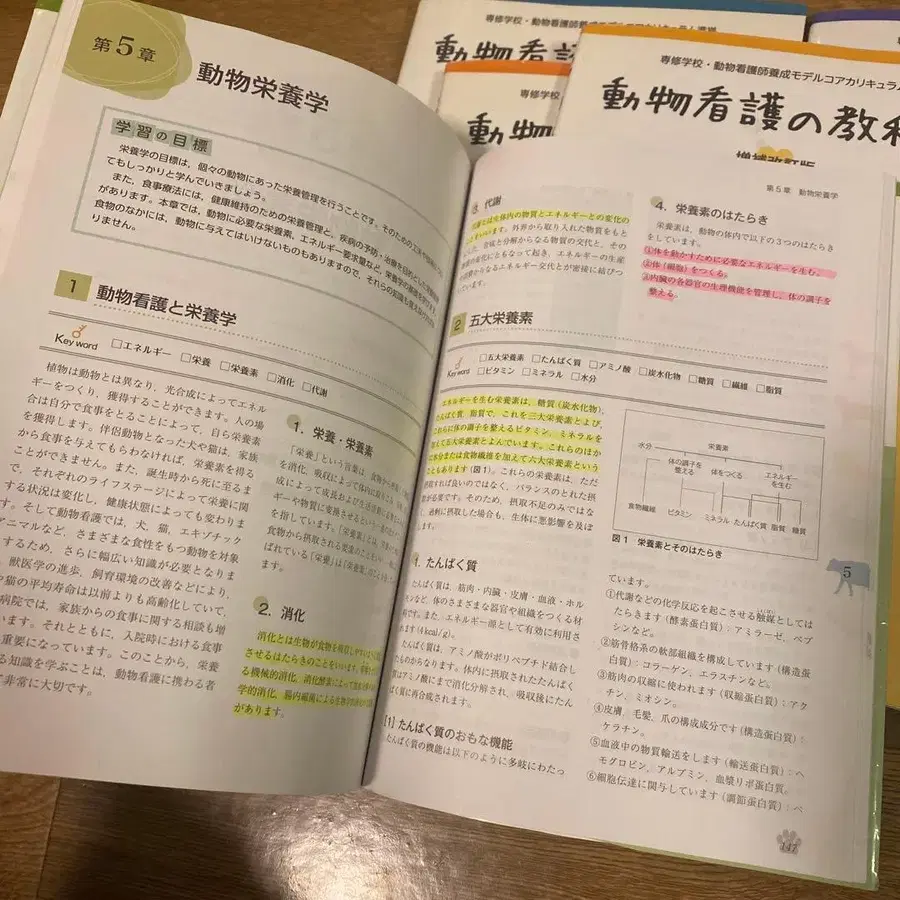 第5章
動物栄養学
学習の目標
栄養学の目標は、個々の動物にあった栄養管理を行うことです。そのための
てもしっかりと学んでいきましょう。
また、食事療法には、健康維持のための栄養管理と、疾病の予防・治療を目的とした
があります。本章では、動物に必要な栄養素、エネルギー要求量など、栄養学の
食物のなかには、動物に与えてはいけないものもありますので、それらの知識も
りません。
1 動物看護と栄養学
Key word □エネルギー □栄養 □栄養素 □消化 □代謝
植物は動物とは異なり、光合成によってエネル
ギーをつくり、獲得することができます。人の場
合は自分で食事をとることによって、自ら栄養素
を獲得します。伴侶動物となった犬や猫は、家族
から食事を与えてもらわなければ、栄養素を得る
ことができません。また、誕生時から死に至るま
で、それぞれのライフステージによって栄養に関
する状況は変化し、健康状態によっても変わりま
す。そして動物看護では、犬、猫、エキゾチック
アニマルなど、さまざまな食性をもつ動物を対象
するため、さらに幅広い知識が必要となりま
、獣医学の進歩、飼育環境の改善などにより、
や猫の平均寿命は以前よりも高齢化していて、
病院では、家族からの食事に関する相談も増
います。それとともに、入院時における食事
重要になっています。このことから、栄養
る知識を学ぶことは、動物看護に携わる者
非常に大切です。
1. 栄養・栄養素
「栄養」という言葉は、食物から
を消化、吸収によって体内に取り
成によって成長および生活活動に
ギーや物質に変換させるという
を指しています。「栄養素」とは、
食物から摂取される要素のこと
ばれている「栄養」は「栄養素」のことを
ます。
2. 消化
消化とは生物が食物を吸収しやすい
させるはたらきのことをいいます。
る機械的消化、消化酵素によって
学的消化、腸内細菌による生物学的消化
があります。
第5章 動物栄養学
3. 代謝
代謝とは生体内の物質とエネルギーとの変化の
ことをいいます。外界から取り入れた物質をもと
にした、合成と分解からなる物質の交代と、その
物質の変化にともなって起き、エネルギーの生産
や消費からなるエネルギー交代とが密接に結びつ
いています。
4. 栄養素のはたらき
栄養素は、動物の体内で以下の3つのはたらき
をしています。
①体を動かすために必要なエネルギーを生む。
②体(細胞)をつくる。
③内臓の各器官の生理機能を管理し、体の調子を
整える。
2 五大栄養素
Key word □五大栄養素 □たんぱく質 □アミノ酸 □炭水化物 □糖質 □繊維 □脂質
□ビタミン □ミネラル □水分
エネルギーを生む栄養素は、糖質(炭水化物)、
たんぱく質、脂質で、これを三大栄養素とよび、
これらに体の調子を整えるビタミン、ミネラルを
加えて五大栄養素とよんでいます。これらのほか
に水分または食物繊維を加えて六大栄養素という
こともあります(図1)。これらの栄養素は、ただ
摂取すれば良いのではなく、バランスのとれた摂
取が必要です。そのため、摂取不足のみではな
く、過剰に摂取した場合も、生体に悪影響を及ぼ
します。
水分 栄養素
体の調子を整える 体をつくる エネルギーを生む
食物繊維 ビタミン ミネラル たんぱく質 脂質 糖質
図1 栄養素とそのはたらき
1. たんぱく質
たんぱく質は、筋肉・内臓・皮膚・血液・ホル
モンなど、体のさまざまな器官や組織をつくる材
料です。また、エネルギー源として有効に利用さ
れます(4kcal/g)。
たんぱく質は、アミノ酸がポリペプチド結合し
たものからなります。体内に摂取されたたんぱく
質はアミノ酸にまで消化分解され、吸収後にたん
ぱく質に再合成されます。
[1] たんぱく質のおもな機能
たんぱく質の機能は以下のように多岐にわたっ
ています。
①代謝などの化学反応を起こさせる触媒としては
たらきます(酵素蛋白質):アミラーゼ、ペプ
シンなど。
②筋骨格系の軟部組織を構成しています(構造蛋
白質):コラーゲン、エラスチンなど。
③筋肉の収縮に使われます(収縮蛋白質):アク
チン、ミオシン。
④皮膚、毛髪、爪の構成成分です(構造蛋白質):
ケラチン。
⑤血液中の物質輸送をします(輸送蛋白質):ヘ
モグロビン、アルブミン、血漿リポ蛋白質。
⑥細胞伝達に関与しています(調節蛋白質):ペ
5
147
専修学校・動物看護師養成モデルコアカリキュラム準拠
動物看護
専修学校
動物
専修学校・動物看護師養成モデルコアカリキュラム
動物看護の教科
増補改訂版